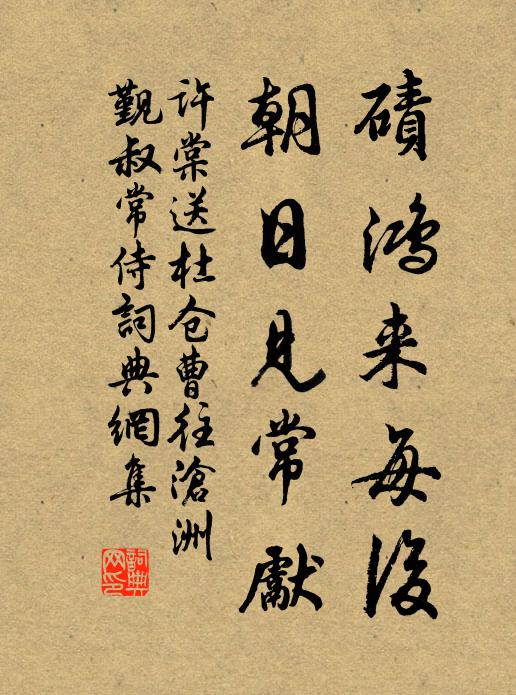 磧鸿来每後
朝日見常獻
許棠送杜仓曹往滄洲
觐叔常侍詞典網集